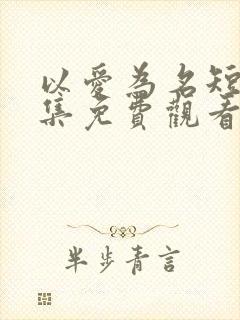 以愛為名短
集免費觀看
半步青言